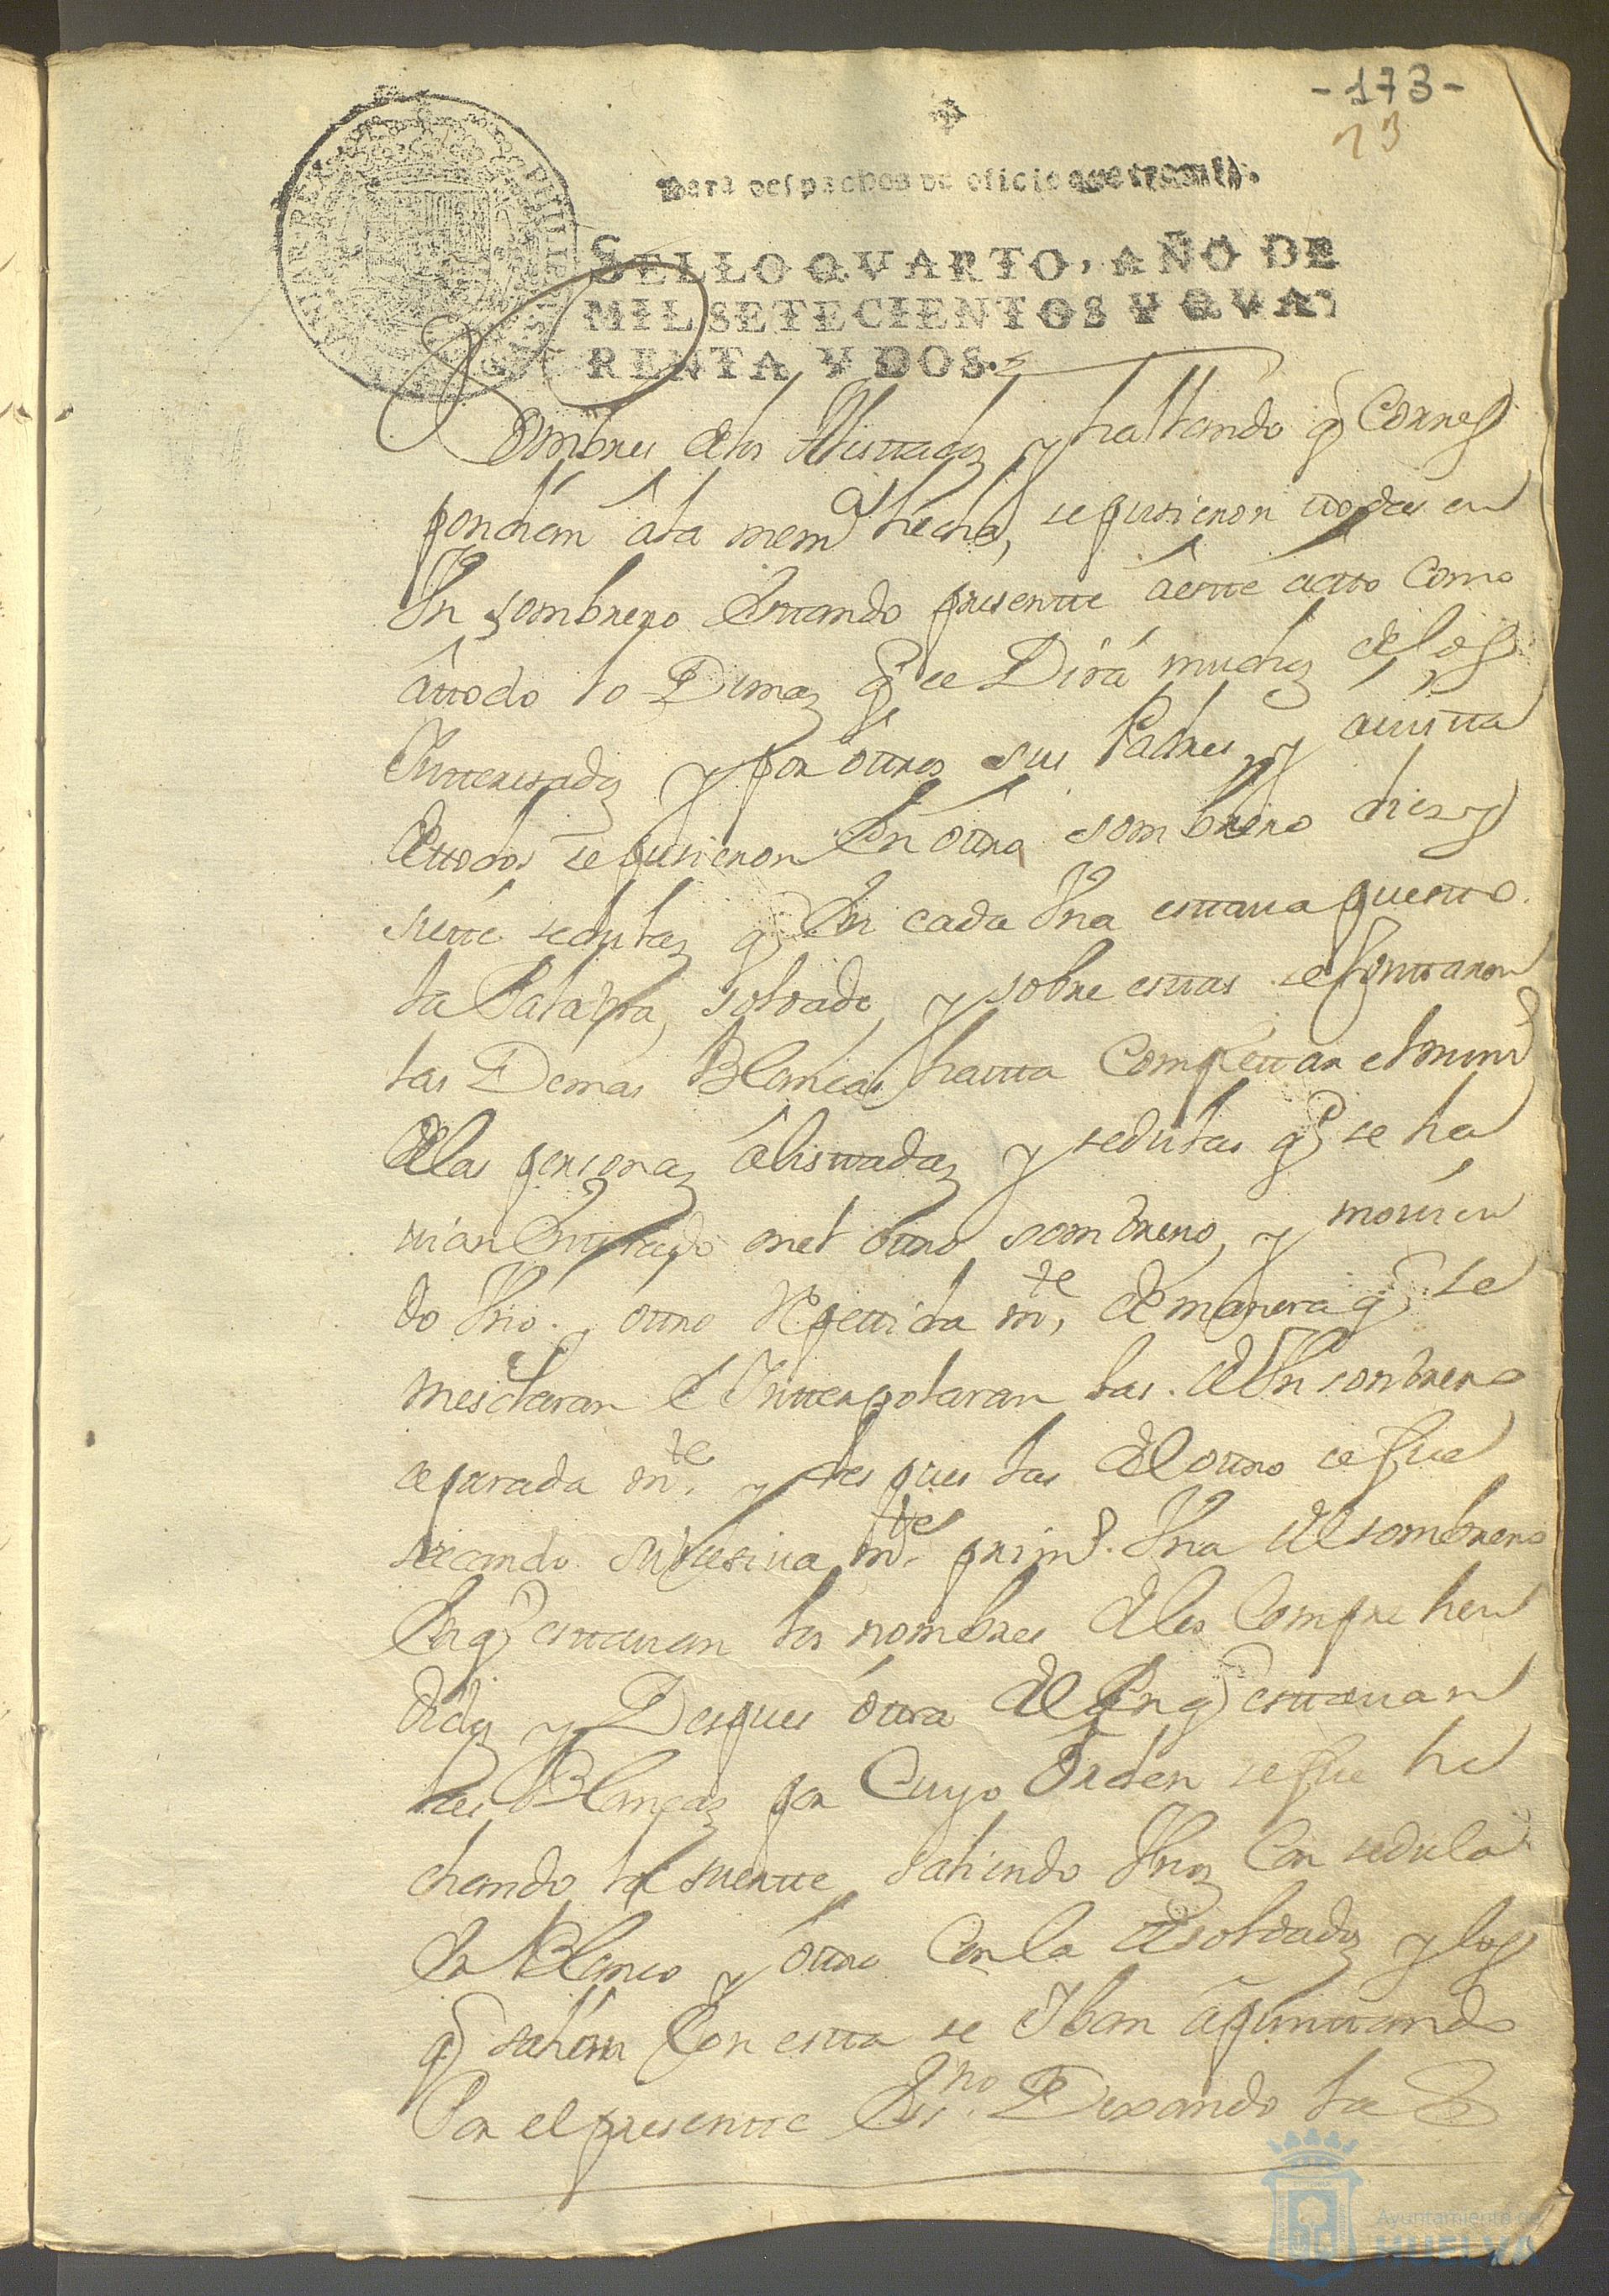 -173-
13
Para despachos de oficio quatro mrs.
SELLO QVARTO, AÑO DE
MIL SETECIENTOS Y QVA-
RENTA Y DOS.
nombres de los Alistados y hallando q Corres
pondian a la mem.a hecha, se pusieron todas en
Un sombrero Estando presente a este acto como
a ttodo lo Demas q se Dirá muchos de los
Ynteresados y por otros sus Padres, y a vista
de ttodos se pusieron En otro sombrero diez y
siete sedulas q En cada Una estaua puesto
la Palabra, soldado, y sobre estas se Juntaron
las Demas Blancas hasta Completar el num.o
de las personas alistadas y sedulas q se ha
uian Entrado en el otro sombrero, y mouien
do Uno y otro Repetida m.te de manera q se
mesclaran E Ynterpolaran las de Un sombrero
separada m.te y despues las del otro se fue
sacando subcesiua m.te prim.o Una del sombrero
En q estauan los nombres de los Compre hen
didos y Despues otra del En q estauan
las Blancas por Cuyo Orden se fue he
chando la suerte saliendo Unos Con sedula
En Blanco y otros Con la de soldados y los
q salian Con esta se Yban apuntando
Por el presente Es.no Dexando la
Ayuntamiento de
HUELVA